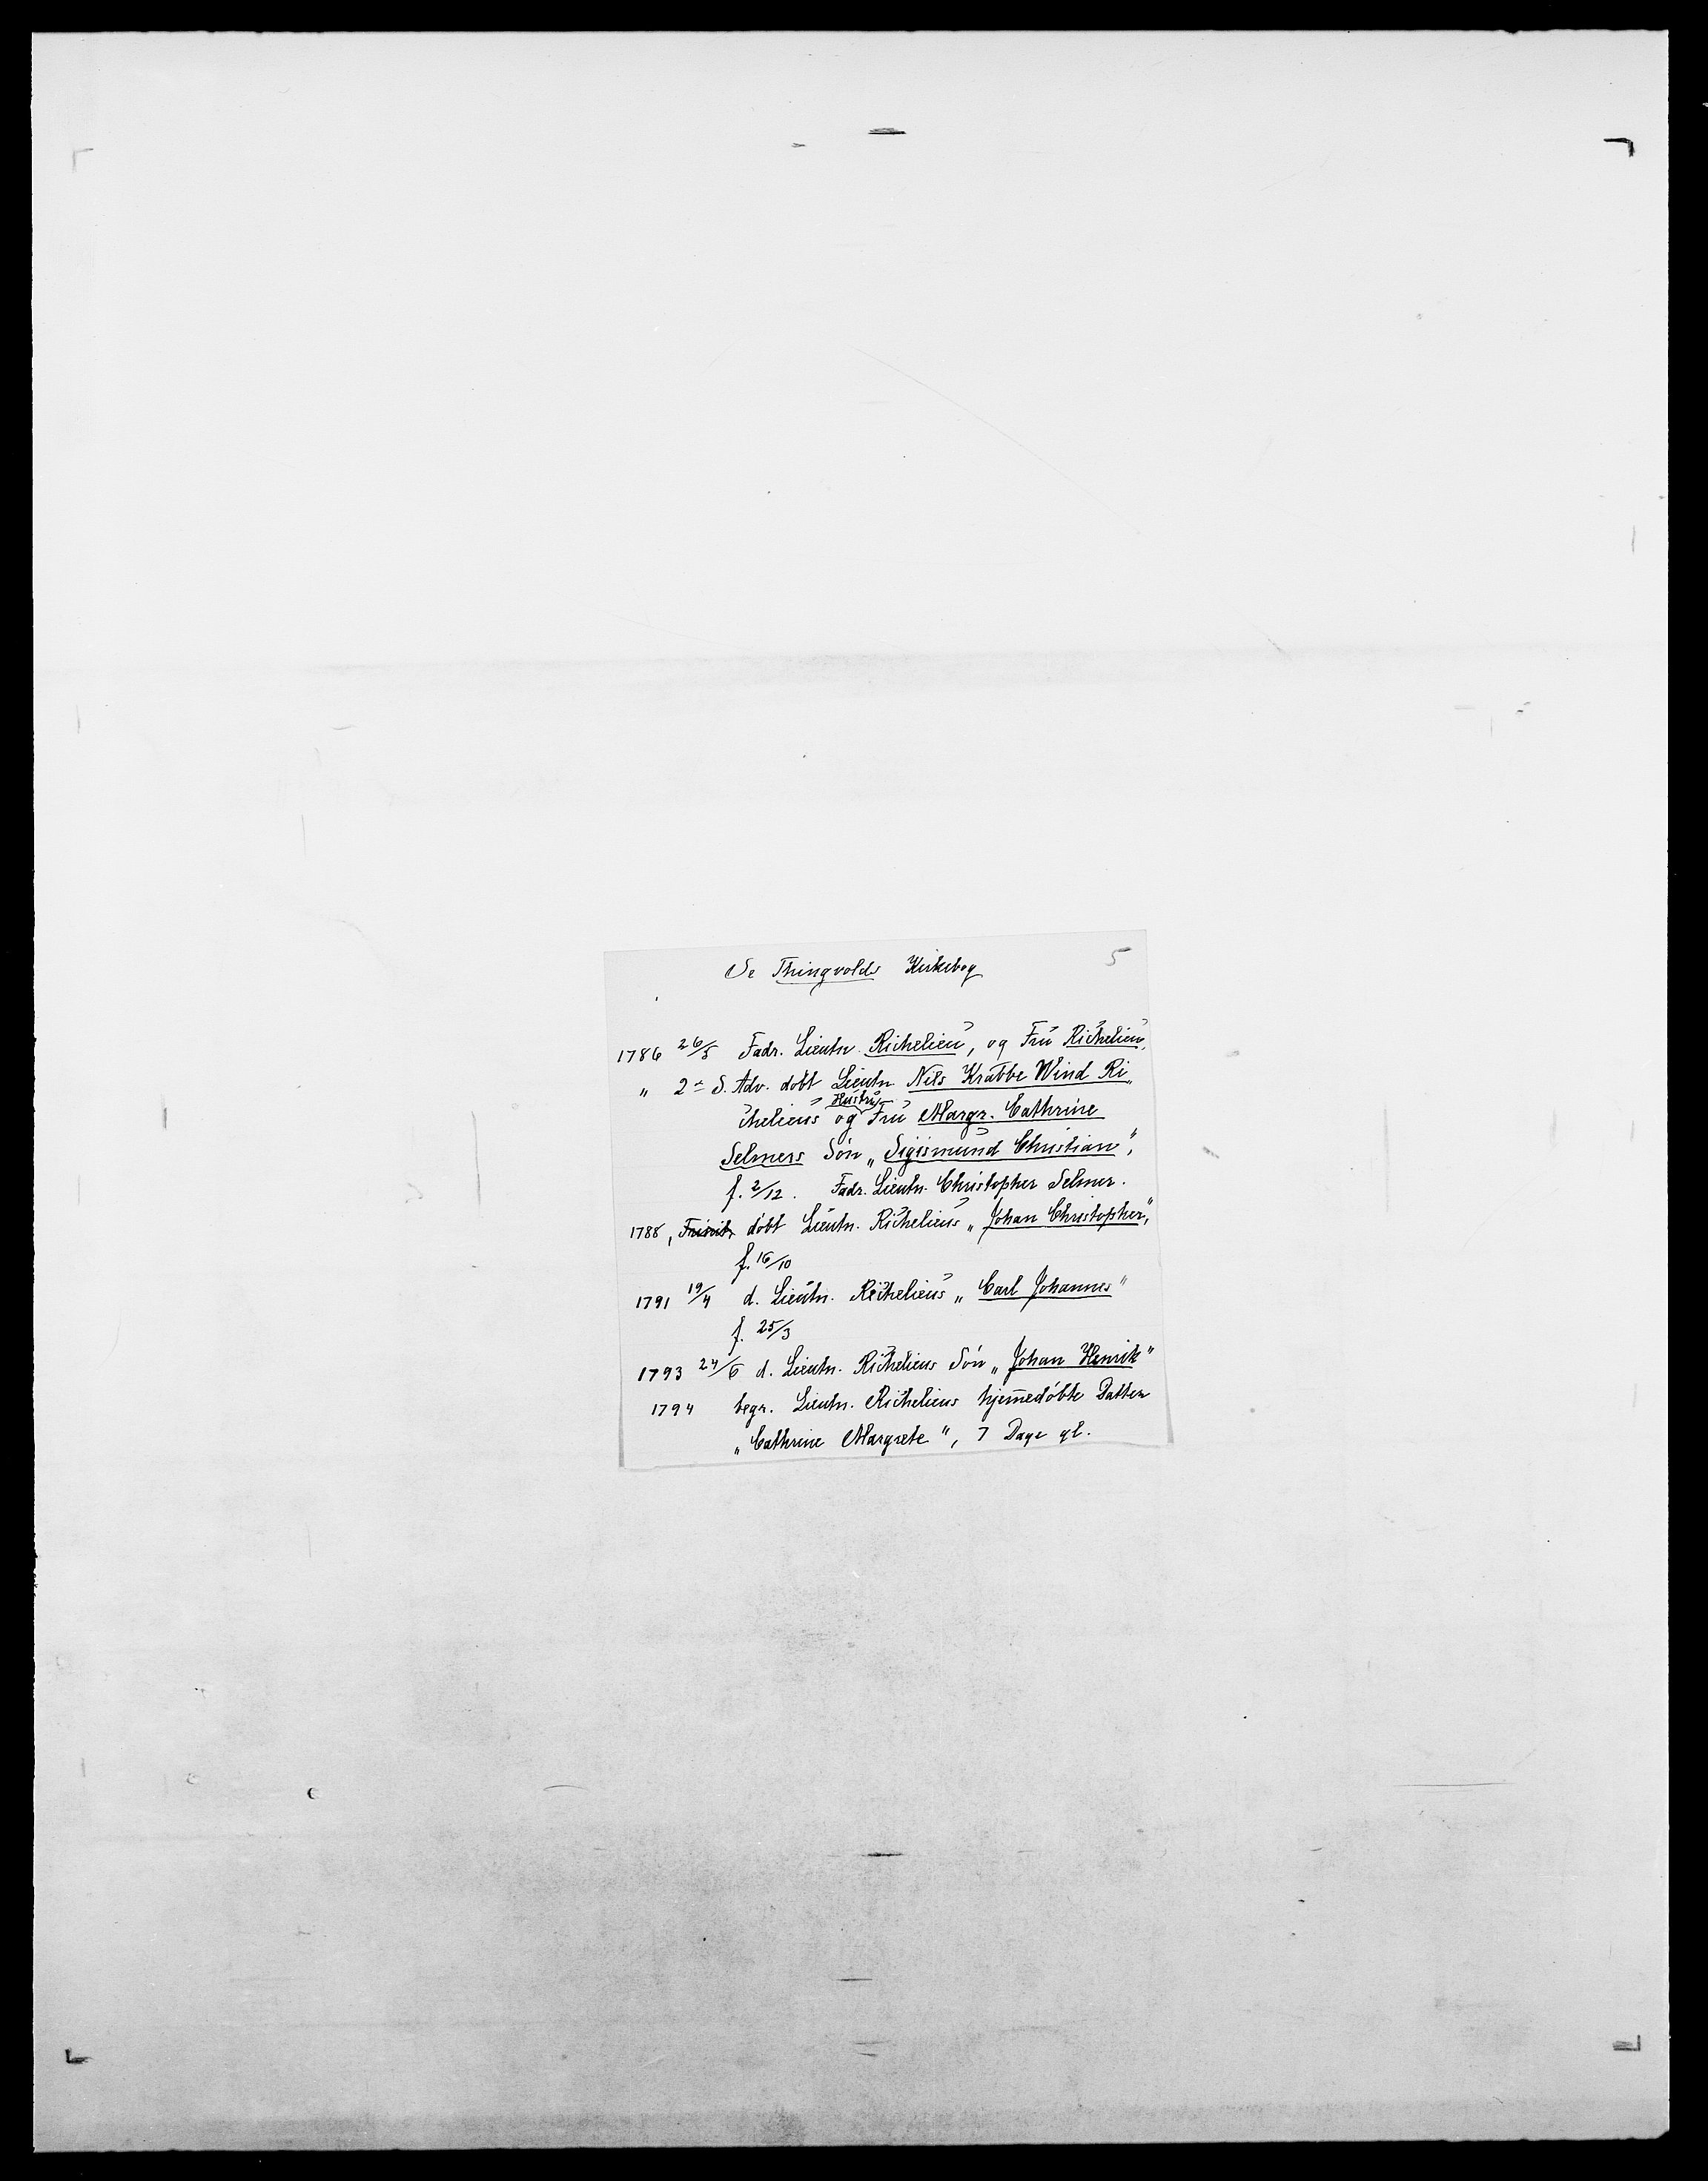 5
Se Thingvolds Kirkebog
1786 26/5 Fadr. Lieutn. Richelieu, og Fru Richelieu,
" 2n S. Adv. døbt Lieutn. Nils Krabbe Wind Ri„
Hustru
chelieus og Fru Margr. Cathrine
Selmers Søn „Sigismund Christian“,
f. 2/12. Fadr. Lieutn. Christopher Selmer.
1788, døbt Lieutn. Richelieus „Johan Christopher“,
f. 16/10
1791 19/4 d. Lieutn. Richelieus „Carl Johannes“
f. 25/3
1793 24/6 d. Lieutn. Richelieus Søn „Johan Henrik“
1794 begr. Lieutn. Richelieus hjemmedøbte Datter
„Cathrine Margrete“, 7 Dage gl.